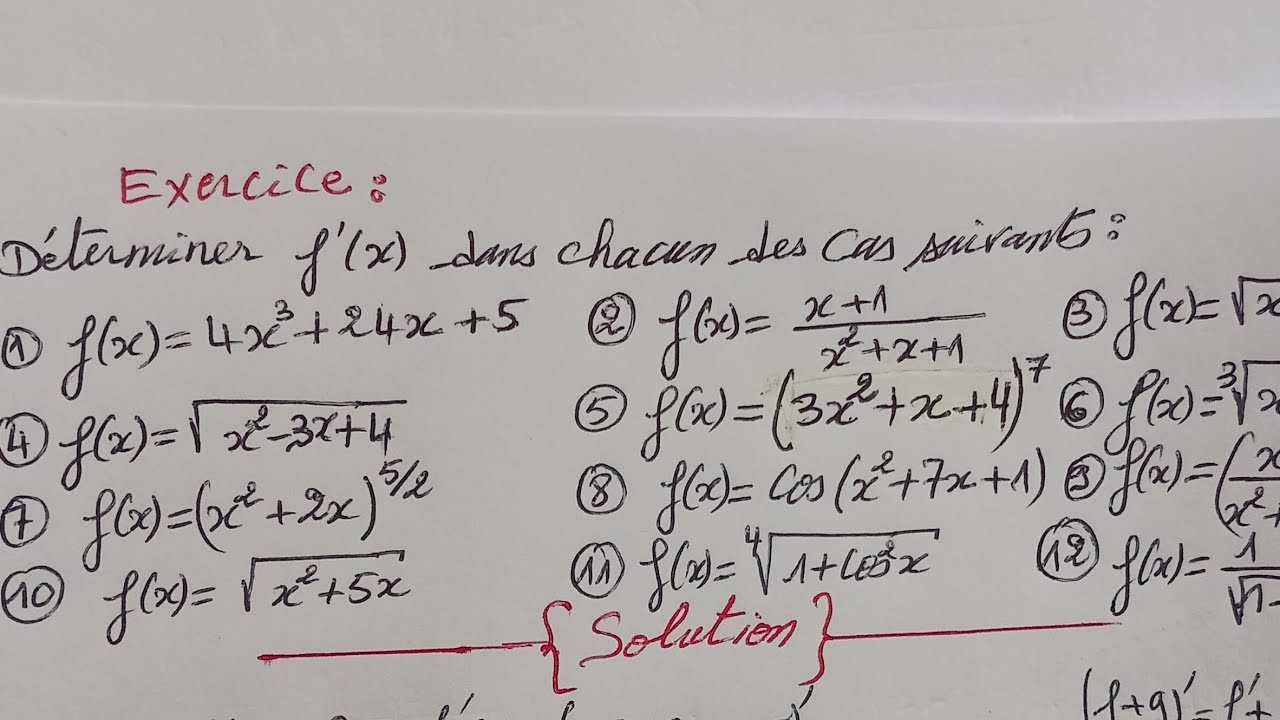 Exercice :
Déterminer f'(x) dans chacun des cas suivants :
① f(x) = 4x³ + 24x + 5 ② f(x) = (x+1)/(x²+x+1) ③ f(x) = √x
④ f(x) = √(x²-3x+4) ⑤ f(x) = (3x²+x+4)⁷ ⑥ f(x) = ³√x
⑦ f(x) = (x²+2x)^5/2 ⑧ f(x) = Cos(x²+7x+1) ⑨ f(x) = (x/x²+
⑩ f(x) = √(x²+5x) ⑪ f(x) = ⁴√(1+Cos²x) ⑫ f(x) = 1/√1-
{Solution}
(f+g)' = f'+